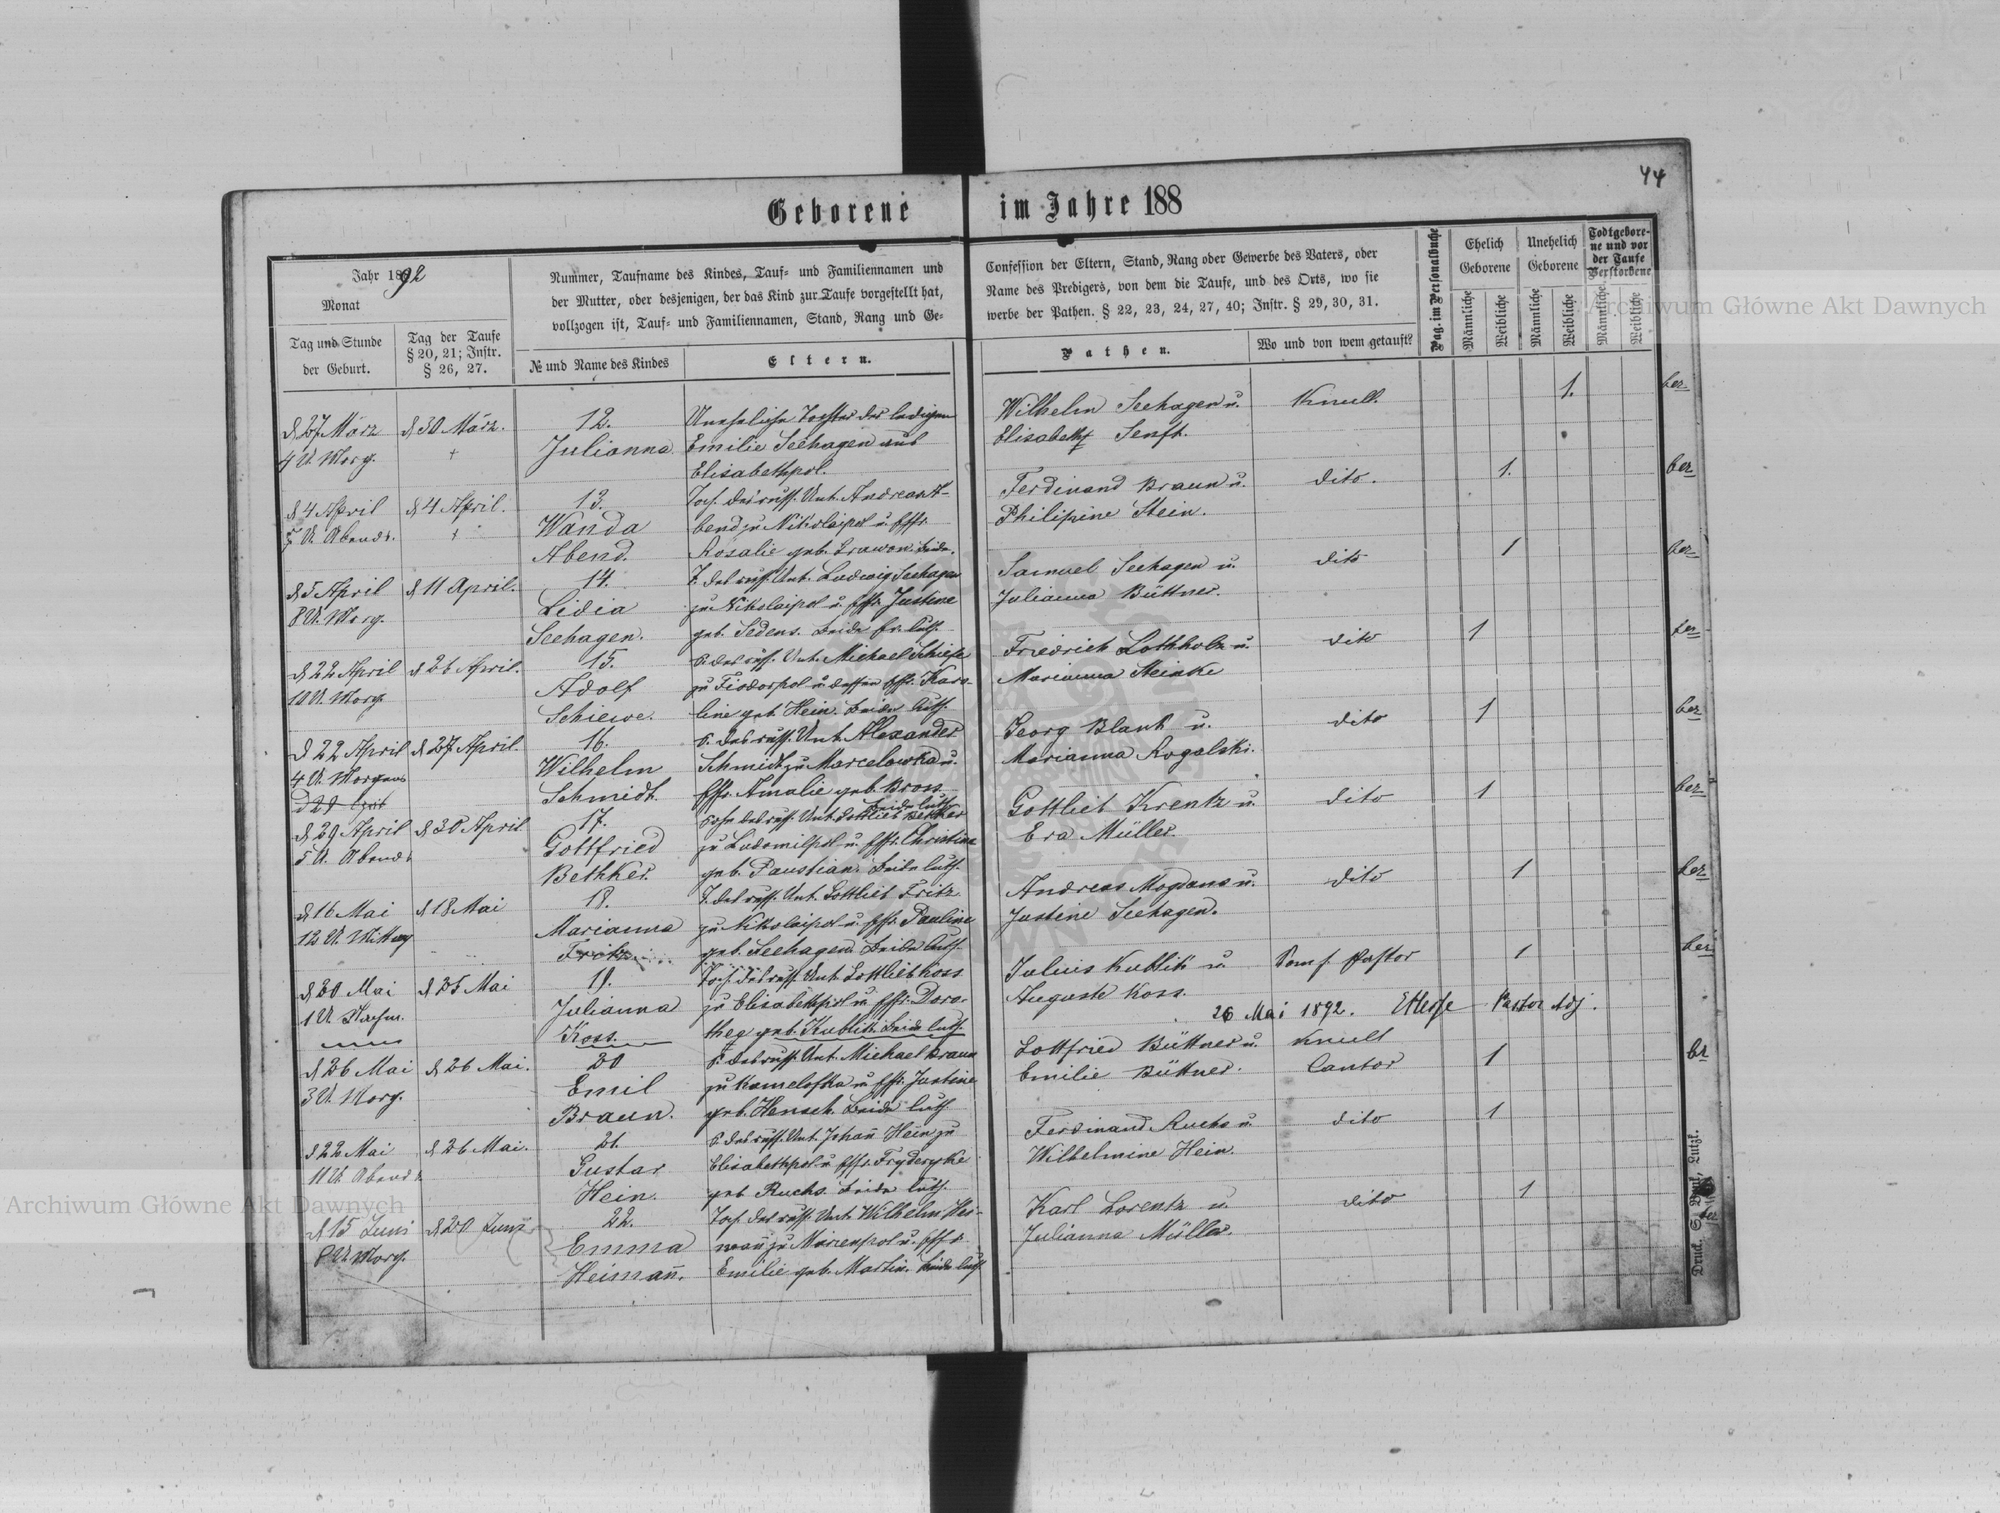 44
Geborene im Jahre 188
Jahr 1892
Monat
Tag und Stunde der Geburt.
Tag der Taufe § 20, 21; Instr. § 26, 27.
Nummer, Taufname des Kindes, Tauf- und Familiennamen und
der Mutter, oder desjenigen, der das Kind zur Taufe vorgestellt hat,
vollzogen ist, Tauf- und Familiennamen, Stand, Rang und Ge-
№ und Name des Kindes
Eltern.
Confession der Eltern, Stand, Rang oder Gewerbe des Vaters, oder
Name des Predigers, von dem die Taufe, und des Orts, wo sie
werbe der Pathen. § 22, 23, 24, 27, 40; Instr. § 29, 30, 31.
Pathen.
Wo und von wem getauft?
Pag. im Personalbuche
Ehelich Geborene
Unehelich Geborene
Todtgebore-
ne und vor
der Taufe
Verstorbene
Männliche
Weibliche
Männliche
Weibliche
Männliche
Weibliche
Archiwum Główne Akt Dawnych
d 27 März d 30 März. 12. Uneheliche Tochter der ledigen Wilhelm Seehagen u. Knull. 1. ber
4 U. Morg. + Julianna Emilie Seehagen aus Elisabeth Senft.
Elisabethpol.
d 4 April d 4 April. 13. Toch. des russ. Unt. Andreas A- Ferdinand Braun u. dito. 1. ber
7 U. Abends. Wanda bend zu Nikolaipol u. Philipine Stein.
Abend. Rosalie geb. beide
d 5 April d 11 April. 14. T. des russ. Unt. Ludwig Seehagen Samuel Seehagen u. dito 1 ber
8 U. Morg. Lidia zu Nikolaipol u. Justine Julianna Büttner.
Seehagen. geb. Sedens. beide luth.
d 22 April d 26 April. 15. S. des russ. Unt. Michael Schiefe Friedrich Lothholz u. dito 1 ber
10 U. Morg. Adolf zu Fiodorpol u. dessen Karo- Marianna Steinke
Schiewe. line geb. Hein. beide luth.
d 22 April d 27 April. 16. S. des russ. Unt. Alexander Georg Blank u. dito 1 ber
4 U. Morgens Wilhelm Schmidt zu Marcelowka u. Marianna Rogalski.
d 29 April Schmidt. Amalie geb. Bross
beide luth.
d 29 April d 30 April 17. Sohn des russ. Unt. Gottlieb Bethker Gottlieb Krentz u. dito 1 ber
5 U. Abends Gottfried zu Ludomilpol u. Christine Eva Müller.
Bethker. geb. Paustian. beide luth.
d 16 Mai d 18 Mai 18. T. des russ. Unt. Gottlieb Fritz Andreas Mogdans u. dito 1 ber
12 U. Mittag Marianna zu Nikolaipol u. Pauline Justine Seehagen.
Fritz geb. Seehagen beide luth.
d 20 Mai d 25 Mai 19. Toch. des russ. Unt. Gottlieb Koss Julius Kublik u. Pastor 1 ber
1 U. Nachm. Julianna zu Elisabethpol u. Doro- Auguste Koss.
Koss. thea geb. Kublik beide luth.
26 Mai 1892. Pastor Adj.
d 26 Mai d 26 Mai. 20 S. des russ. Unt. Michael Braun Gottfried Büttner u. Knull 1 br
3 U. Morg. Emil zu Kamelofka u. Justine Emilie Büttner. Cantor
Braun. geb. Hensch. beide luth.
d 22 Mai d 26 Mai. 21. S. des russ. Unt. Johan̄ Hein zu Ferdinand Ruchs u. dito 1
11 U. Abends Gustav Elisabethpol u. Fryderyke Wilhelmine Hein.
Hein. geb. Ruchs. beide luth.
d 15 Juni d 20 Juni 22. Toch. des russ. Unt. Wilhelm Hei- Karl Lorentz u. dito 1 ber
8 U. Morg. Emma man̄ zu Marienpol u. Julianna Müller.
Heiman̄. Emilie geb. Martin. beide luth
Druck. S. Bonk, Lutzk.
Archiwum Główne Akt Dawnych